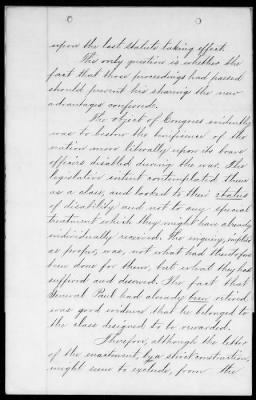 upon the last statute taking effect.
The only question is whether the
fact that those proceedings had passed
should prevent his sharing the new
advantages conferred.
The object of Congress evidently
was to bestow the beneficence of the
nation more liberally upon its brave
officers disabled during the war. The
legislative intent contemplated them
as a class, and looked to their status
of disability and not to any special
treatment which they might have already
individually received. The inquiry, implied
as proper, was, not what had theretofore
been done for them, but what they had
suffered and deserved. The fact that
General Paul had already been retired
was good evidence that he belonged to
the class designed to be rewarded.
Therefore, although the letter
of the enactment, by a strict construction,
might seem to exclude, from the